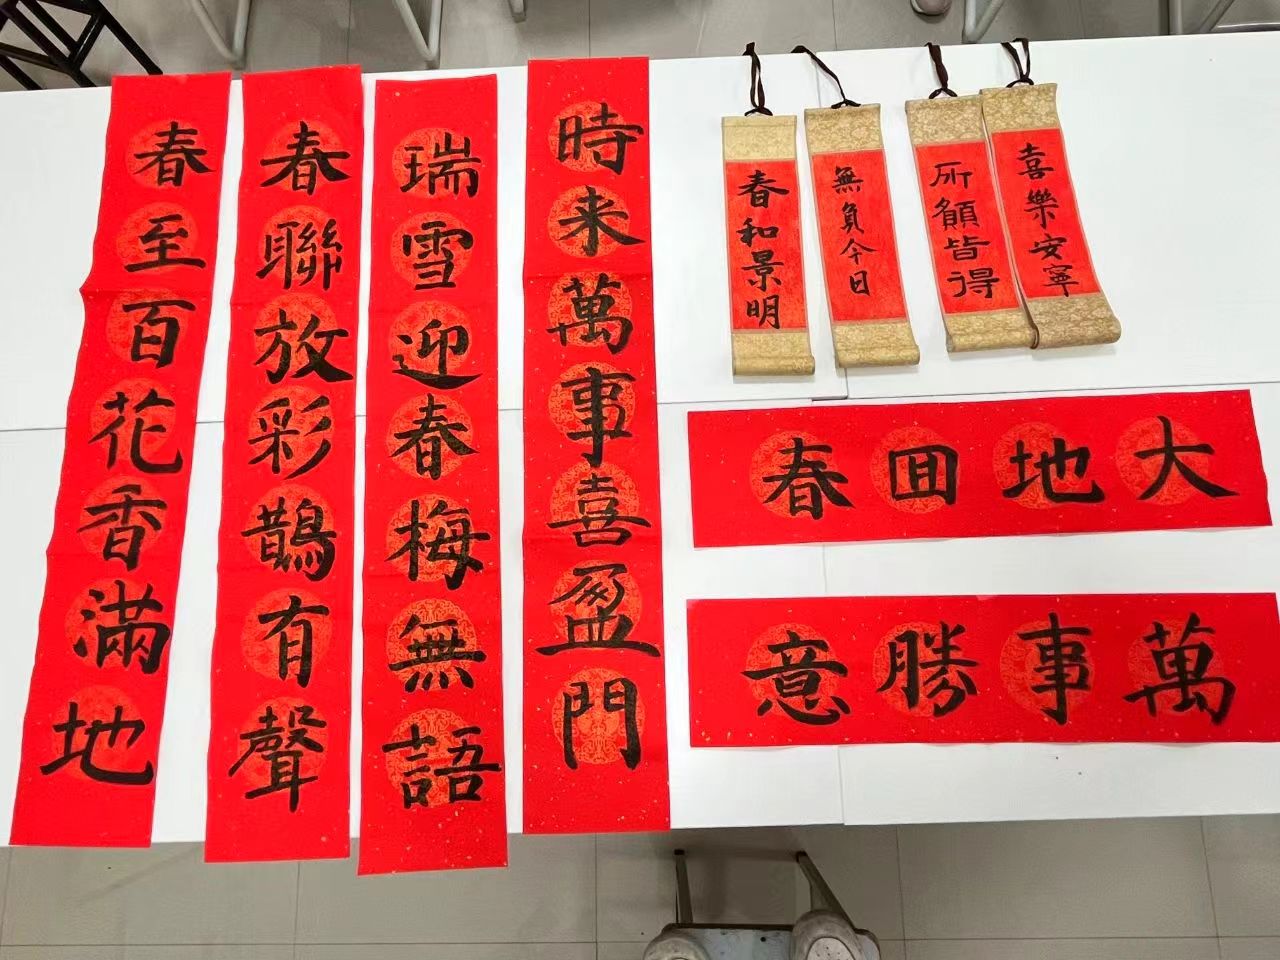 時来萬事喜盈門
瑞雪迎春梅無語
春聯放彩鵲有聲
春至百花香滿地
喜樂安寧
所願皆得
無負今日
春和景明
大地回春
萬事勝意